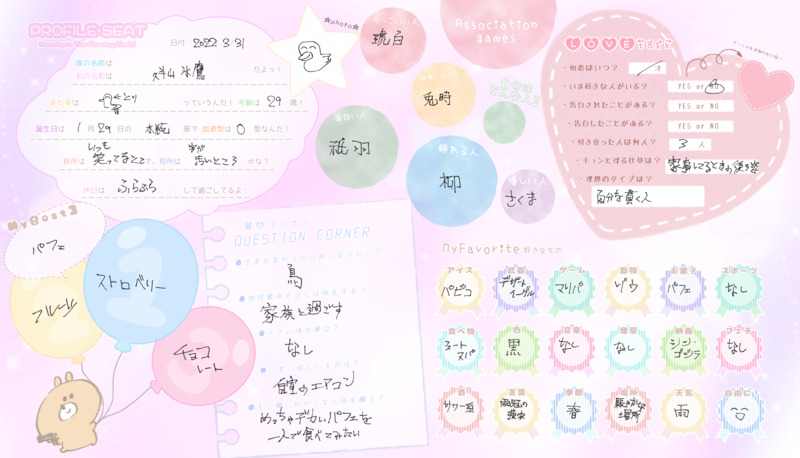 PROFILE SEAT
日付 2022 3/31
僕の名前は
私の名前は
斜山 氷鷹 だよ！
あだ名は
っていうんだ！ 年齢は 29 歳！
誕生日は 1 月 29 日の 水瓶 座で 血液型は O 型なんだ！
長所は いつも笑ってるところ で、短所は 字が汚いところ かな？
休日は ふらふら して過ごしてるよ！
★photo★
かっこいい人
琥白
かわいい人
兎時
面白い人
祗羽
頼れる人
柳
優しい人
さくま
Association
games
LOVEをきかせて
・初恋はいつ？
・いま好きな人がいる？ YES or NO
・告白されたことがある？ YES or NO
・告白したことがある？ YES or NO
・付き合った人は何人？ 3 人
・キュンとする仕草は？ 家事してるときの後ろ姿
・理想のタイプは？
自分を貫く人
MyBest3
パフェ
フルーツ
ストロベリー
チョコレート
質問コーナー
QUESTION CORNER
鳥
家族と過ごす
なし
自室のエアコン
めっちゃデカいパフェを
一人で食べてみたい
MyFavorite 好きなもの
アイス 武器 ゲーム 動物 お菓子 スポーツ
パピコ デザートイーグル マリパ ゾウ パフェ なし
食べ物 色 音楽 映画 フェチ
ミートスパ 黒 なし なし シン・ゴジラ なし
酒 言葉 季節 場所 天気 自由に
サワー類 春 賑やかな場所 雨